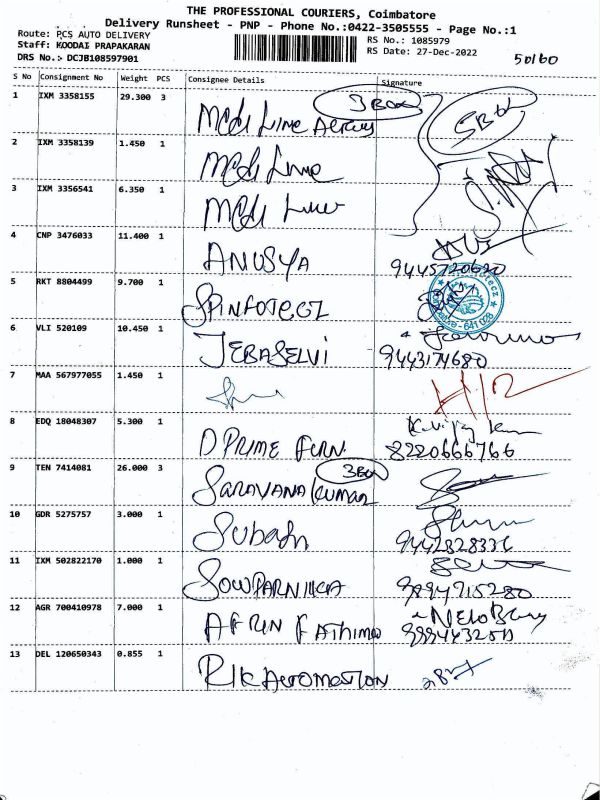 THE PROFESSIONAL COURIERS, Coimbatore
Delivery Runsheet - PNP - Phone No.:0422-3505555 - Page No.:1
Route: PCS AUTO DELIVERY
RS No.: 1085979
Staff: KOODAI PRAPAKARAN
RS Date: 27-Dec-2022
DRS No.: DCJB108597901
50/60
S No Consignment No Weight PCS Consignee Details Signature
1 IXM 3358155 29.300 3 3 Box 5 Box
2 IXM 3358139 1.450 1
3 IXM 3356541 6.350 1
4 CNP 3476033 11.400 1 ANUSYA
9445720620
5 RKT 8804499 9.700 1 SPINFOTECZ
6 VLI 520109 10.450 1 JEBASELVI
9443174680
7 MAA 567977055 1.450 1
8 EDQ 18048307 5.300 1 D PRIME FURN.
8220666766
9 TEN 7414081 26.000 3 SARAVANA KUMAR 3 Box
10 GDR 5275757 3.000 1 Subash
9442828336
11 IXM 502822170 1.000 1 SOWPARNIKA
9894715280
12 AGR 700410978 7.000 1 AFRIN FATHIMA
13 DEL 120650343 0.855 1 RIK AUTOMATION